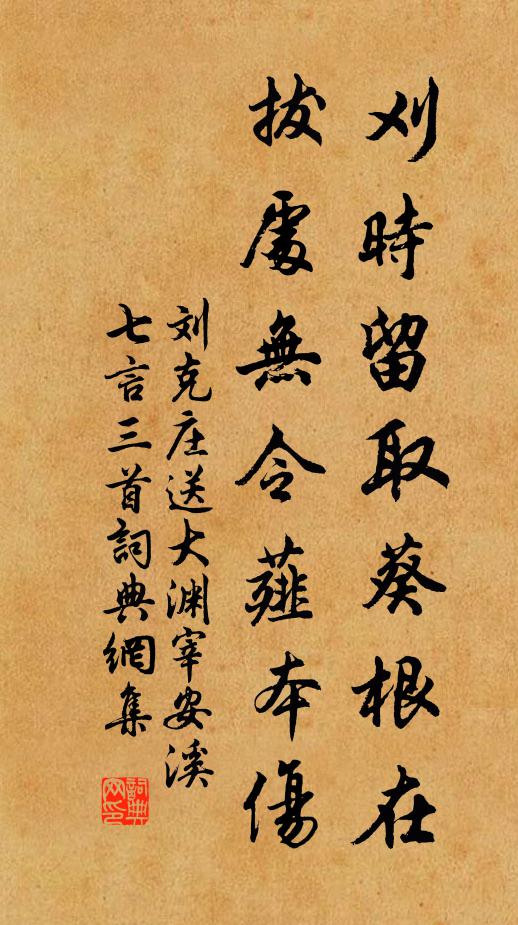 刈時留取葵根在
拔處無令薤本傷
刘克庄送大渊宰安溪
七言三首詞典網集
詞典网印